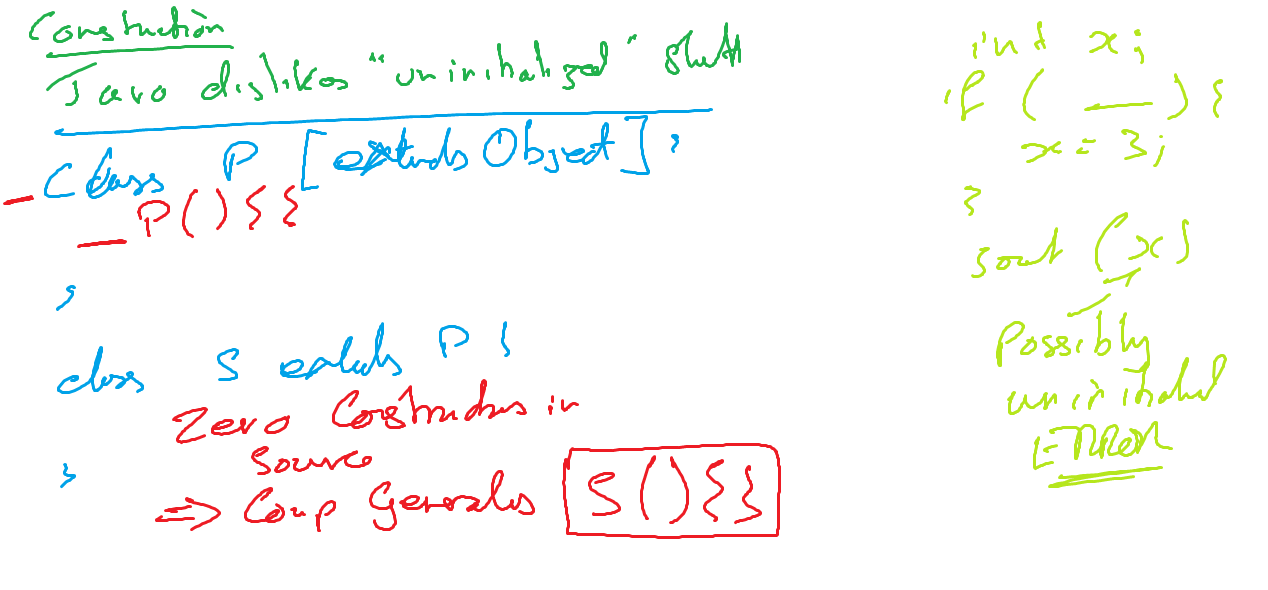 Construction
Java dislikes "uninitialized" stuff
class P [extends Object] {
P() { }
}
class S extends P {
Zero Constructors in
Source
=> Comp Generates S() { }
}
int x;
if ( __ ) {
x = 3;
}
sout (x)
Possibly
uninitialized
ERROR